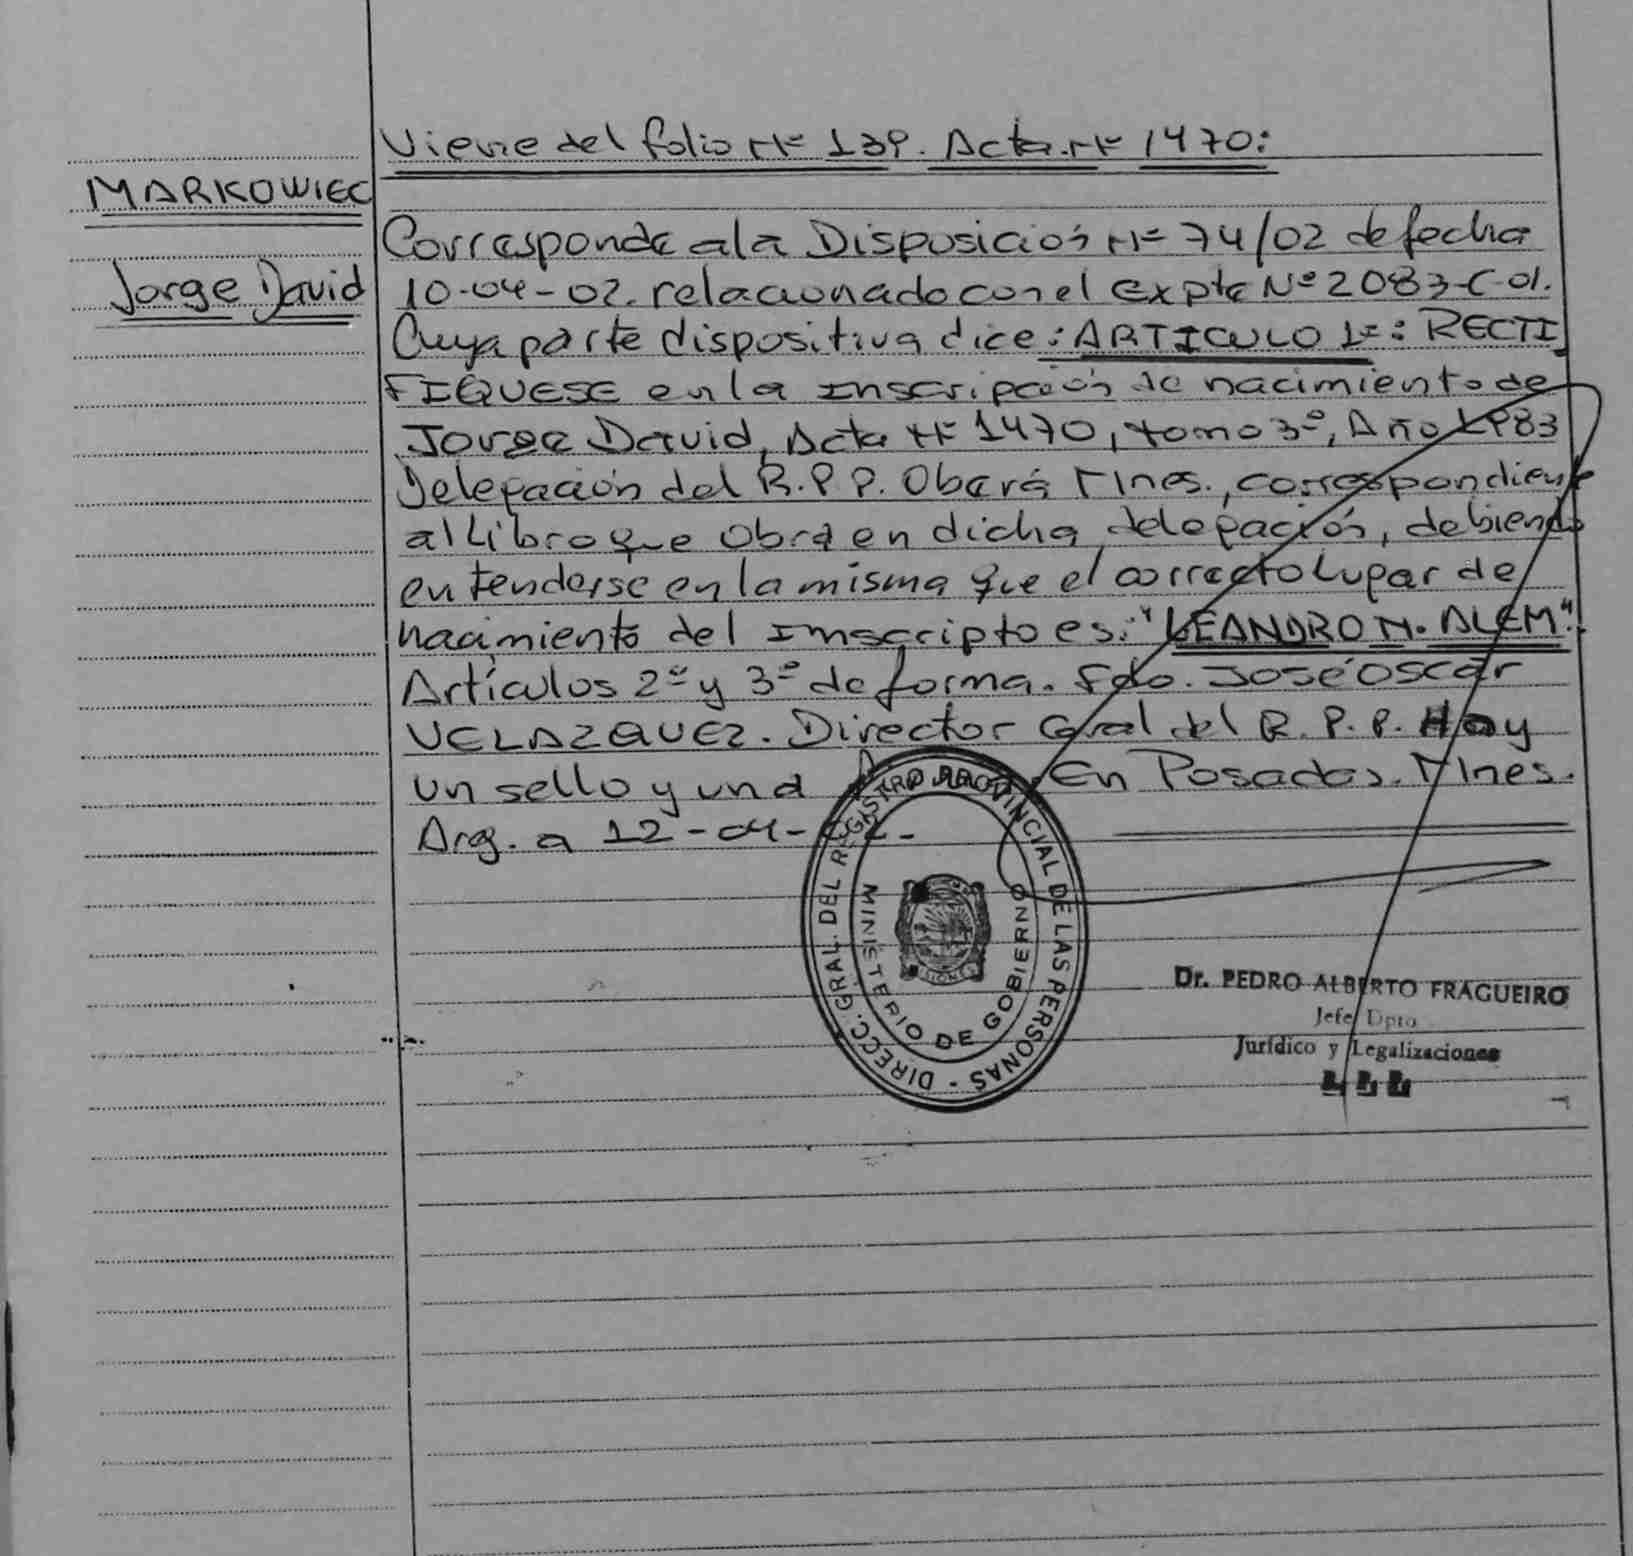 Viene del folio Nº 139. Acta Nº 1470:
MARKOWIEC
Jorge David
Corresponde a la Disposición Nº 74/02 de fecha
10-04-02. relacionado con el expte Nº 2083-C-01.
Cuya parte dispositiva dice: ARTICULO 1º: RECTI
FIQUESE en la Inscripción de nacimiento de
Jorge David, Acta Nº 1470, tomo 3º, Año 1983
Delegación del R.P.P. Oberá Mnes., correspondiente
al Libro que obra en dicha delegación, debiendo
entenderse en la misma que el correcto lugar de
nacimiento del Inscripto es: "LEANDRO N. ALEM".
Artículos 2º y 3º de forma. Fdo. José Oscar
VELAZQUEZ. Director Gral del R.P.P. Hay
un sello y una En Posadas. Mnes.
Arg. a 12-04-
DIRECC. GRAL. DEL REGISTRO PROVINCIAL DE LAS PERSONAS -
MINISTERIO DE GOBIERNO
MISIONES
Dr. PEDRO ALBERTO FRAGUEIRO
Jefe Dpto
Jurídico y Legalizaciones